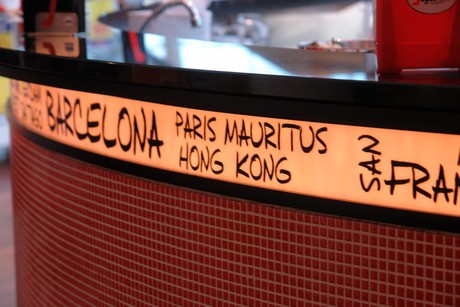 BARCELONA
PARIS MAURITUS
HONG KONG
SAN
FRAN